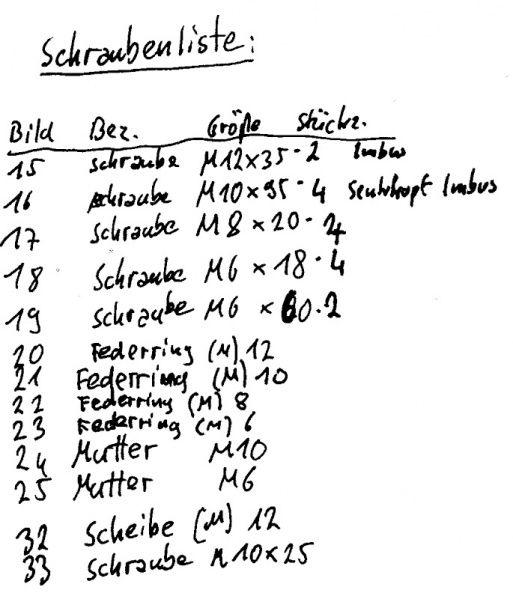 Schraubenliste:
Bild Bez. Größe Stückz.
15 Schraube M12x35 - 2 Imbus
16 Schraube M10x35 - 4 Senkkopf Imbus
17 Schraube M8 x 20 - 4
18 Schraube M6 x 18 - 4
19 Schraube M6 x 60 - 2
20 Federring (M) 12
21 Federring (M) 10
22 Federring (M) 8
23 Federring (M) 6
24 Mutter M10
25 Mutter M6
32 Scheibe (M) 12
33 Schraube M10x25